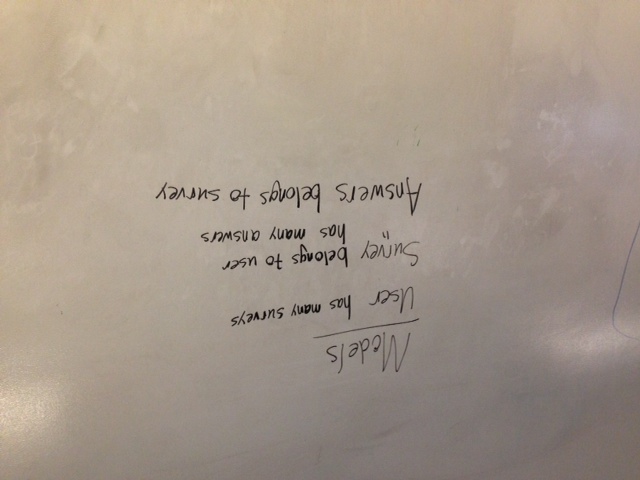 Models
User has many surveys
Survey belongs to user
" has many answers
Answers belongs to survey